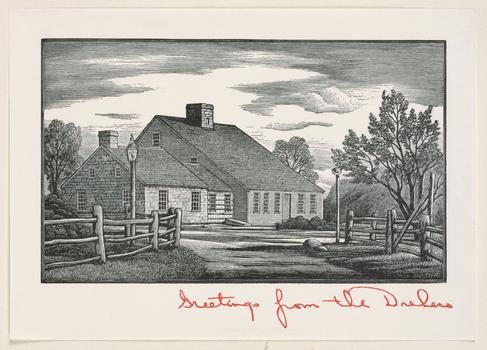 Greetings from the Drehers